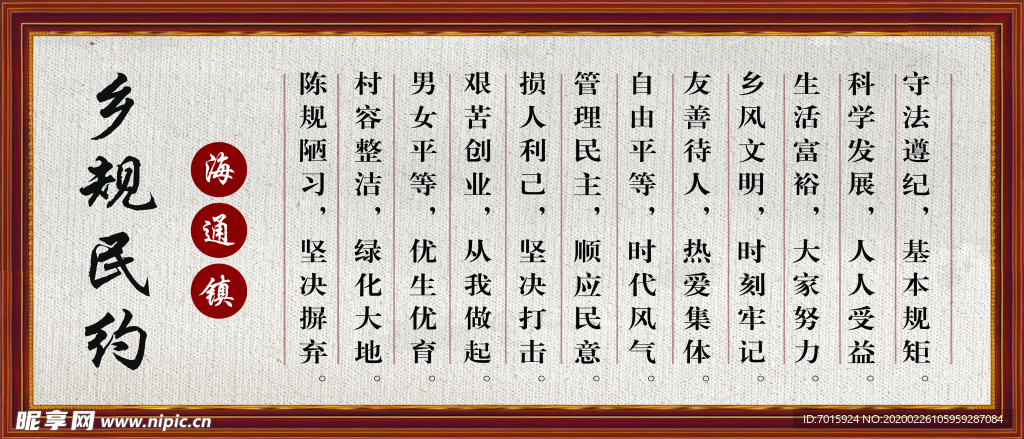 守法遵纪，基本规矩。
科学发展，人人受益
生活富裕，大家努力。
乡风文明，时刻牢记。
友善待人，热爱集体。
自由平等，时代风气。
管理民主，顺应民意。
损人利己，坚决打击。
艰苦创业，从我做起。
男女平等，优生优育。
村容整洁，绿化大地。
陈规陋习，坚决摒弃。
海通镇
乡规民约
昵享网 www.nipic.cn
ID:7015924 NO:20200226105959287084